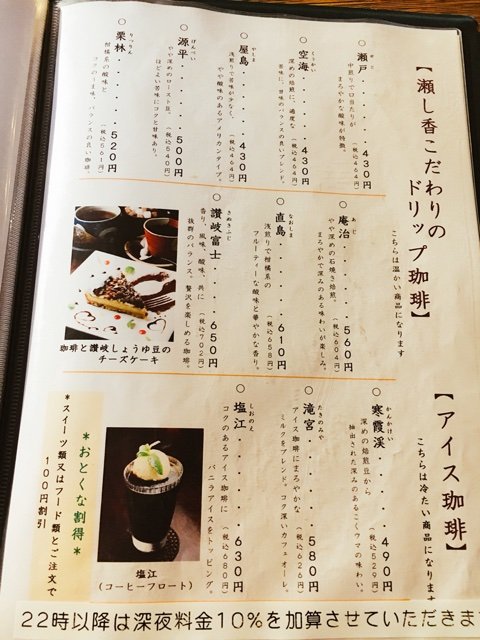 【瀬し香こだわりの
ドリップ珈琲】
こちらは温かい商品になります
○瀬戸・・・・・430円
せと
中煎りで口当たりが(税込464円)
まろやかな酸味が特徴。
○空海・・・・・430円
くうかい
深めの焙煎に、適度な(税込464円)
苦味に、甘味のバランスの良いブレンド。
○屋島・・・・・430円
やしま
浅煎りで苦味が少なく、(税込464円)
やや酸味のあるアメリカンタイプ。
○源平・・・・・500円
げんぺい
やや深めのロースト豆。(税込540円)
ほどよい苦味にコクと甘味あり。
○栗林・・・・・520円
りつりん
柑橘系の酸味と(税込561円)
コクのうま味、バランスの良い珈琲。
○庵治・・・・・560円
あじ
やや深めの石焼き焙煎。(税込604円)
まろやかで深みのある味わいが楽しみ。
○直島・・・・・610円
なおしま
浅煎りで柑橘系の(税込658円)
フルーティーな酸味と華やかな香り。
○讃岐富士・・・・650円
さぬきふじ
香り、風味、酸味、共に(税込702円)
抜群のバランス。贅沢を楽しめる珈琲。
珈琲と讃岐しょうゆ豆の
チーズケーキ
【アイス珈琲】
こちらは冷たい商品になります
○寒霞渓・・・・490円
かんかけい
深めの焙煎豆から(税込529円)
抽出された深みのあるこくウマの味わい。
○滝宮・・・・・580円
たきのみや
アイス珈琲にまろやかな(税込626円)
ミルクをブレンド。コク深いカフェオーレ。
○塩江・・・・・630円
しおのえ
コクのあるアイス珈琲に(税込680円)
バニラアイスをトッピング。
塩江
(コーヒーフロート)
*おとくな割得*
*スイーツ類又はフード類とご注文で
100円割引
22時以降は深夜料金10%を加算させていただきま